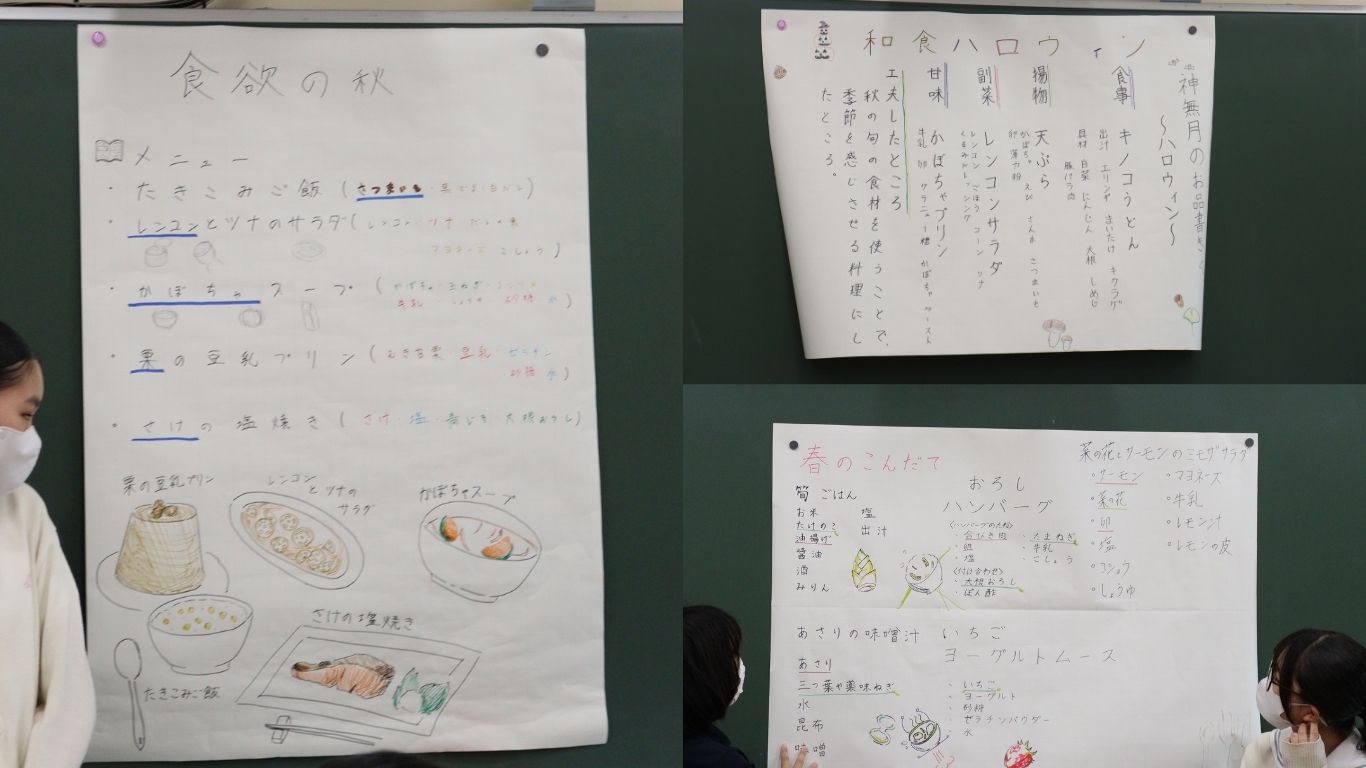 食欲の秋
メニュー
・たきこみご飯(さつまいも・
・レンコンとツナのサラダ(レンコン・ツナ・
マヨネーズ こしょう)
・かぼちゃスープ(かぼちゃ・玉ねぎ・
牛乳・ 砂糖 水)
・栗の豆乳プリン(むき甘栗・豆乳・ゼラチン
砂糖 水)
・さけの塩焼き(さけ・塩・青じそ・大根おろし)
栗の豆乳プリン
レンコン
とツナの
サラダ
かぼちゃスープ
さけの塩焼き
たきこみご飯
神無月のお品書き
〜ハロウィン〜
和食ハロウィン
食事 キノコうどん
出汁 エリンギ まいたけ キクラゲ
具材 白菜 にんじん 大根 しめじ
豚バラ肉
揚物 天ぷら
かぼちゃ えび さんま さつまいも
卵 薄力粉
副菜 レンコンサラダ
レンコン ごぼう コーン ツナ
くるみドレッシング
甘味 かぼちゃプリン
牛乳 卵 グラニュー糖 かぼちゃペースト
工夫したところ
秋の旬の食材を使うことで、
季節を感じさせる料理にし
たところ。
春のこんだて
筍ごはん
お米 塩
たけのこ 出汁
油揚げ
醤油
酒
みりん
おろし
ハンバーグ
〈ハンバーグのたね〉
・合びき肉 ・たまねぎ
・卵 ・牛乳
・塩 ・こしょう
〈付け合わせ〉
・大根おろし
・ぽん酢
菜の花とサーモンのミモザサラダ
・サーモン ・マヨネーズ
・菜の花 ・牛乳
・卵 ・レモン汁
・塩 ・レモンの皮
・コショウ
・しょうゆ
あさりの味噌汁
あさり
三つ葉や薬味ねぎ
水
昆布
味噌
いちご
ヨーグルトムース
・いちご
・ヨーグルト
・砂糖
・ゼラチンパウダー
・水